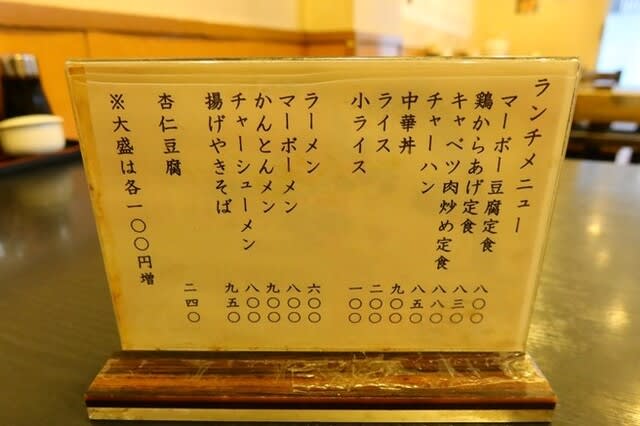 ランチメニュー
マーボー豆腐定食 八〇〇
鶏からあげ定食 八三〇
キャベツ肉炒め定食 八八〇
チャーハン 八五〇
中華丼 九〇〇
ライス 二〇〇
小ライス 一〇〇
ラーメン 六〇〇
マーボーメン 八〇〇
かんとんメン 九〇〇
チャーシューメン 八〇〇
揚げやきそば 九五〇
杏仁豆腐 二四〇
※大盛は各一〇〇円増